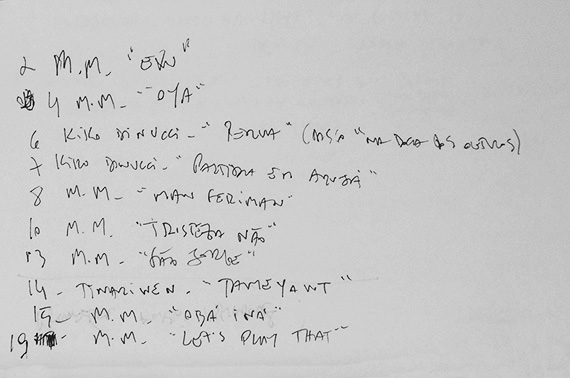 2 M.M. "EXÚ"
4 M.M. - "OYA"
6 KIKO DINUCCI - " " (DISCO "NA BOCA DOS OUTROS)
7 KIKO DINUCCI - "PARTIDA EM ARUJÁ"
8 M.M. - "MAN FERIMAN"
10 M.M. - "TRISTEZA NÃO"
13 M.M. - "SÃO JORGE"
14 - TINARIWEN - "TAMEYAWT"
15 - M.M. - "OBÁ INÁ"
19 - M.M. - "LET'S PLAY THAT"